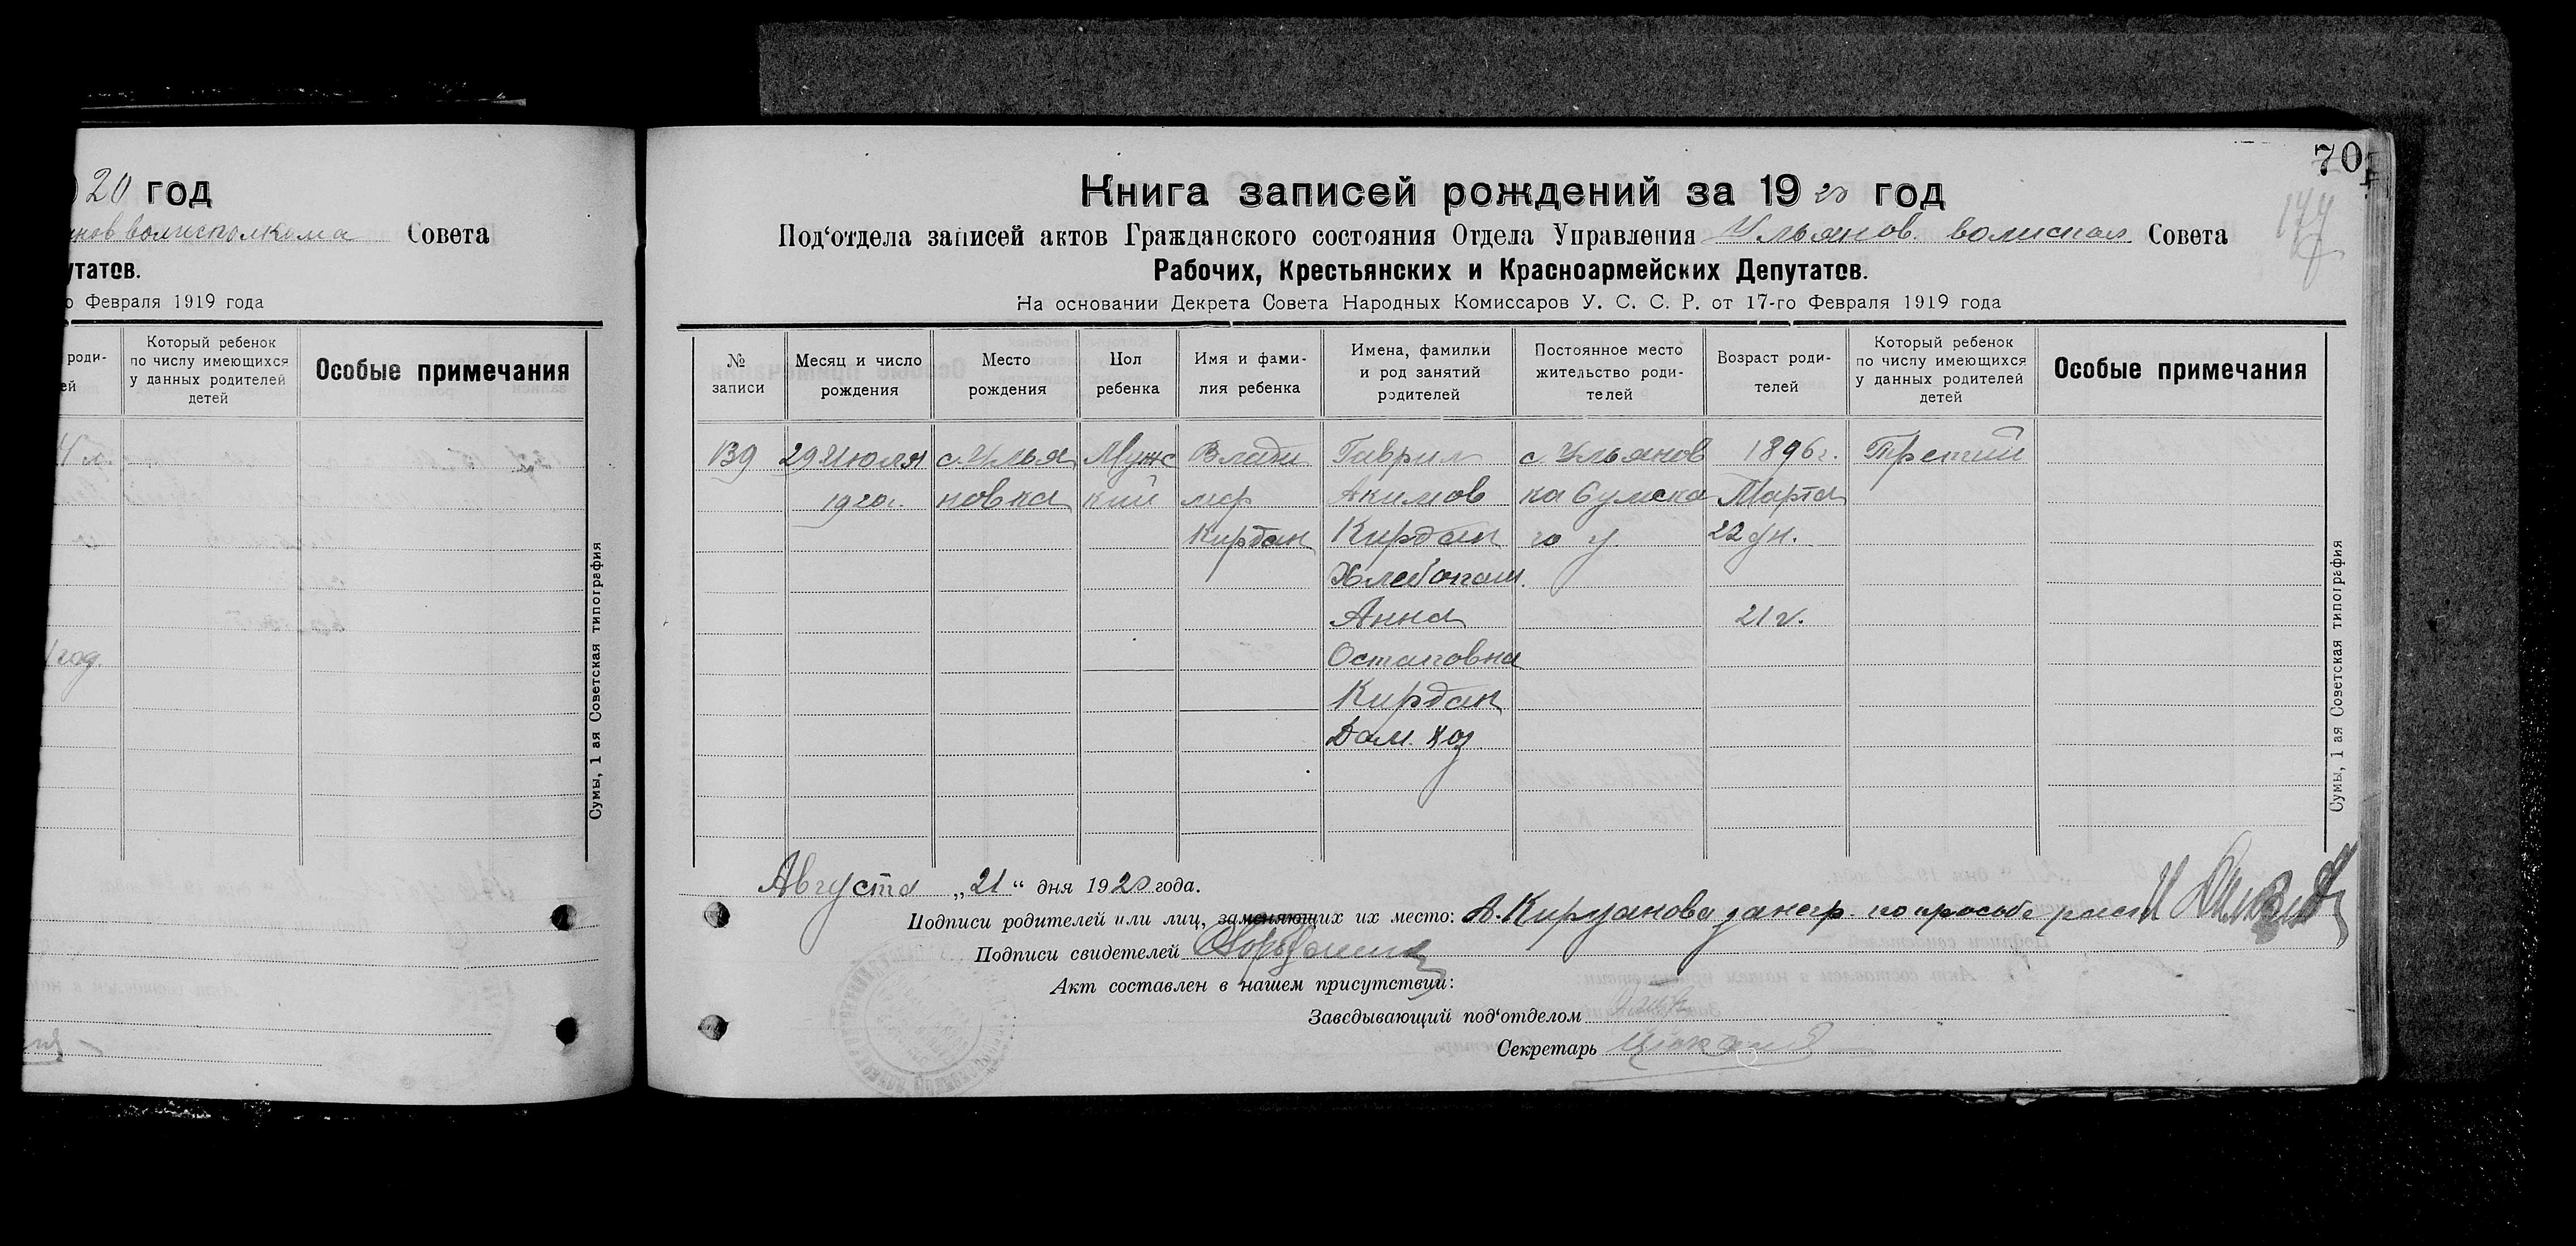 20 год
волисполкома Совета
утатов.
о Февраля 1919 года
роди-
ей
Который ребенок
по числу имеющихся
у данных родителей
детей
Особые примечания
год.
Сумы, 1 ая Советская типография
70
Книга записей рождений за 1920 год
Под‘отдела записей актов Гражданского состояния Отдела Управления Ульянов. волиспол Совета
Рабочих, Крестьянских и Красноармейских Депутатов.
На основании Декрета Совета Народных Комиссаров У. С. С. Р. от 17-го Февраля 1919 года
№
записи
Месяц и число
рождения
Место
рождения
Пол
ребенка
Имя и фами-
лия ребенка
Имена, фамилии
и род занятий
родителей
Постоянное место
жительство роди-
телей
Возраст роди-
телей
Который ребенок
по числу имеющихся
у данных родителей
детей
Особые примечания
139 29 Июля с. Улья Мужс Влади Гаврил с Ульянов 1896 г. Третий
1920 г. новка кий мир Акимов ка Сумско Марта
Кирдан Кирдан го у. 22 дн.
Хлебопаш.
Анна 21 г.
Остаповна
Кирдан
Дом. хоз
Сумы, 1 ая Советская типография
Августа „21“ дня 1920 года.
Подписи родителей или лиц, заменяющих их место: А. по просьбе
Подписи свидетелей
Акт составлен в нашем присутствии:
Заведывающий под‘отделом
Секретарь